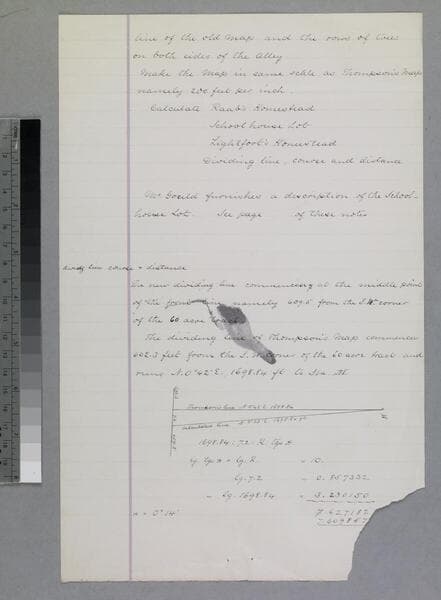 line of the old Map and the rows of trees
on both sides of the Alley
Make the Map in same scale as Thompson's Map
namely 200 feet per inch.
Calculate Raab's Homestead
Schoolhouse Lot
Lightfoot's Homestead
Dividing line, course and distance
Mr Gould furnishes a description of the School-
house Lot. See page of these notes
Divid'g line course & distance
The new dividing line commencing at the middle point
of the front line, namely 609.5 from the S.W. corner
of the 60 acre tract
The dividing line of Thompson's Map commences
602.3 feet from the S. corner of the 60 acre tract and
runs N. 0° 42' E. 1698.84 ft to Sta. M.
Thompson's line N. 0° 42' E. 1698.84
Calculated line
1698.84 : 7.2 = R : tg. a
lg. tg. a = lg. R. = 10.
lg. 7.2 = 0.857332
- lg. 1698.84 = 3.230150
7.627182
7.609857
a = 0° 14'